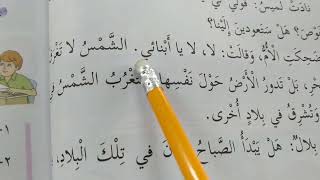 نادَتْ لَميسُ: قولي لي
نوسُ؟ هَلْ سَتَعودينَ إِلَيْنا؟
ضَحِكَتِ الْأُمُّ، وَقالَتْ: لا، لا يا أَبْنائي. الشَّمْسُ لا تَغْرُ
بَلْ تَدورُ الْأَرْضُ حَوْلَ نَفْسِها تَغْرُبُ الشَّمْسُ
وَتُشْرِقُ في بِلادٍ أُخْرى.
بِلالٌ: هَلْ يَبْدَأُ الصَّباحُ نَ في تِلْكَ الْبِلادِ
١-
٢-